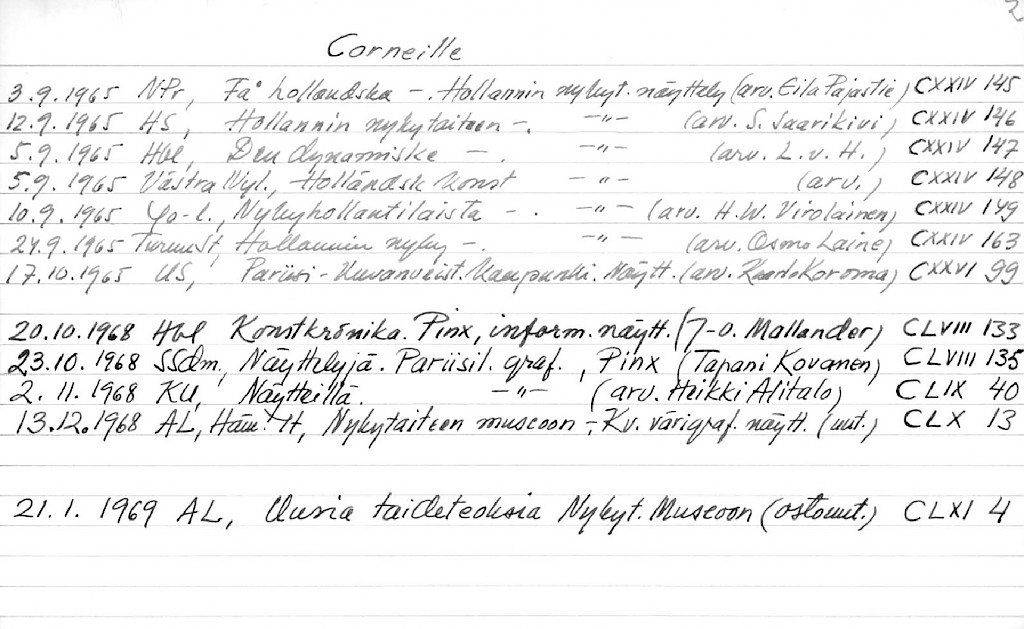 2
Corneille
3.9.1965 NPr, Få hollandska -. Hollannin nykyt. näyttely (arv. Eila Pajastie) CXXIV 145
12.9.1965 HS, Hollannin nykytaiteen -. -"- (arv. S. Saarikivi) CXXIV 146
5.9.1965 Hbl, Den dynamiske -. -"- (arv. L.v.H.) CXXIV 147
5.9.1965 Västra Nyl., Holländsk konst -"- (arv.) CXXIV 148
10.9.1965 Yo-l., Nykyhollantilaista -. -"- (arv. H.W. Virolainen) CXXIV 149
24.9.1965 TurunSt, Hollannin nyky -. -"- (arv. Osmo Laine) CXXIV 163
17.10.1965 US, Pariisi - Kuvanveist. Kaupunki. Näytt. (arv. Kaarlo Koroma) CXXVI 99
20.10.1968 Hbl Konstkrönika. Pinx, inform. näytt. (J-O. Mallander) CLVIII 133
23.10.1968 SSdm, Näyttelyjä. Pariisil. graf., Pinx (Tapani Kovanen) CLVIII 135
2.11.1968 KU, Näytteillä. -"- (arv. Heikki Alitalo) CLIX 40
13.12.1968 AL, Häm. -H, Nykytaiteen museoon -, Kv. värigraf. näytt. (uut.) CLX 13
21.1.1969 AL, Uusia taideteoksia Nykyt. Museoon (ostouut.) CLXI 4